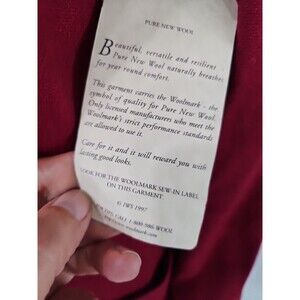 PURE NEW WOOL
Beautiful, versatile and resilient
Pure New Wool naturally breathes
for year round comfort.
This garment carries the Woolmark - the
symbol of quality for Pure New Wool.
Only licensed manufacturers who meet the
Woolmark's strict performance standards
are allowed to use it.
Care for it and it will reward you with
lasting good looks.
LOOK FOR THE WOOLMARK SEW-IN LABEL
ON THIS GARMENT
© IWS 1997
CALL 1-800-986-WOOL